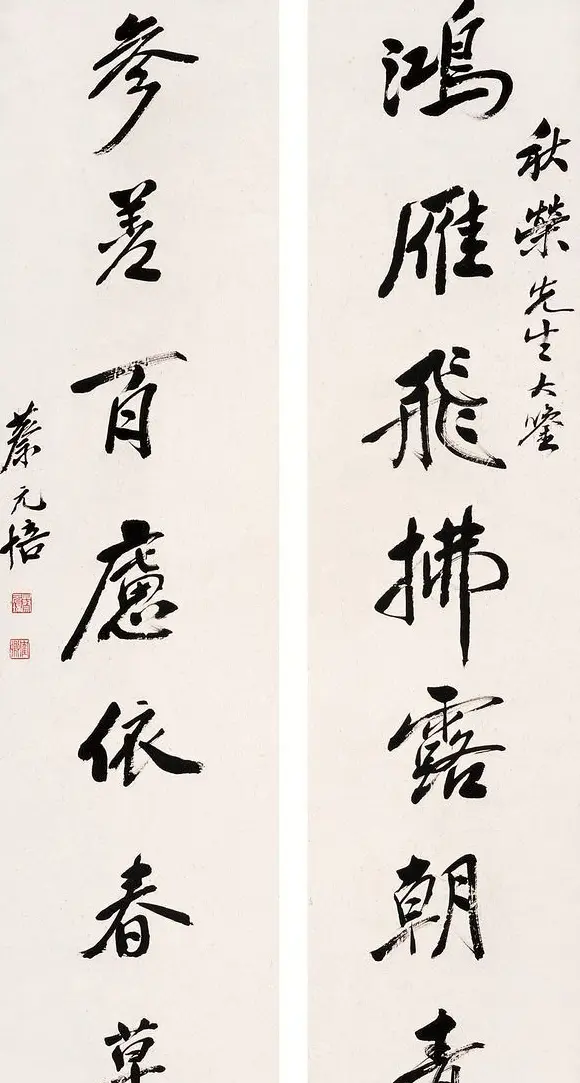 秋榮先生大鑒
鴻雁飛拂露朝
參差百慮依春草
蔡元培